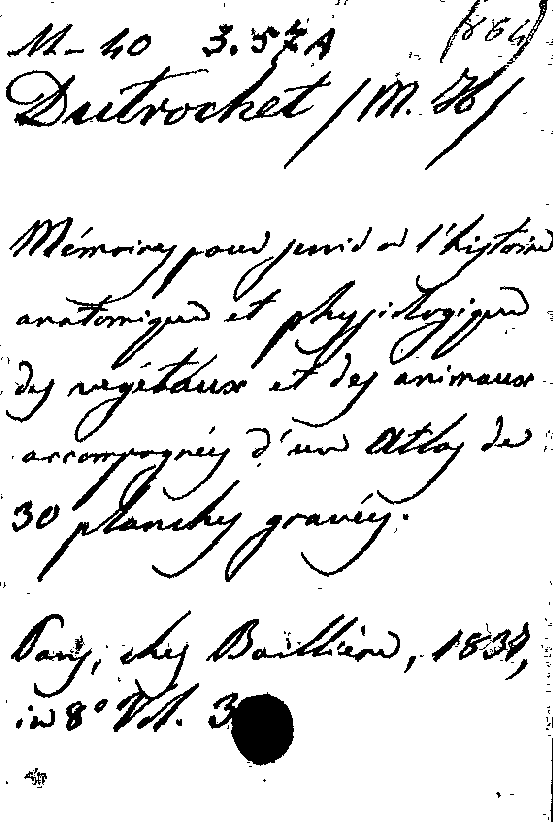 M-40 3.5 A (864)
Dutrochet (M. H)
Mémoires pour servir à l'histoire
anatomique et physiologique
des végétaux et des animaux
accompagnés d'un Atlas de
30 planches gravées.
Paris, chez Baillière, 1837,
in 8° Vol. 3